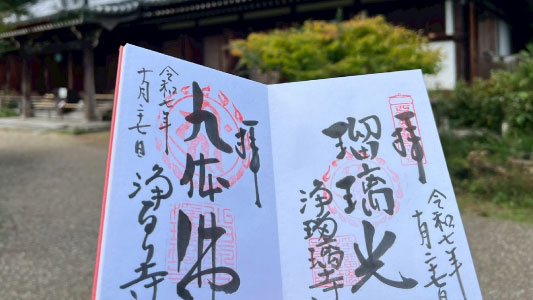 拝
瑠璃光
浄瑠璃寺
令和七年
十月二十七日
拝
九体佛
浄瑠璃寺
令和七年
十月二十七日